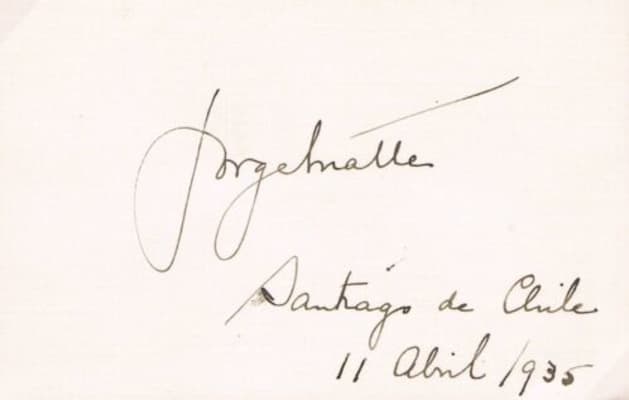 Jorge Matte
Santiago de Chile
11 Abril 1935